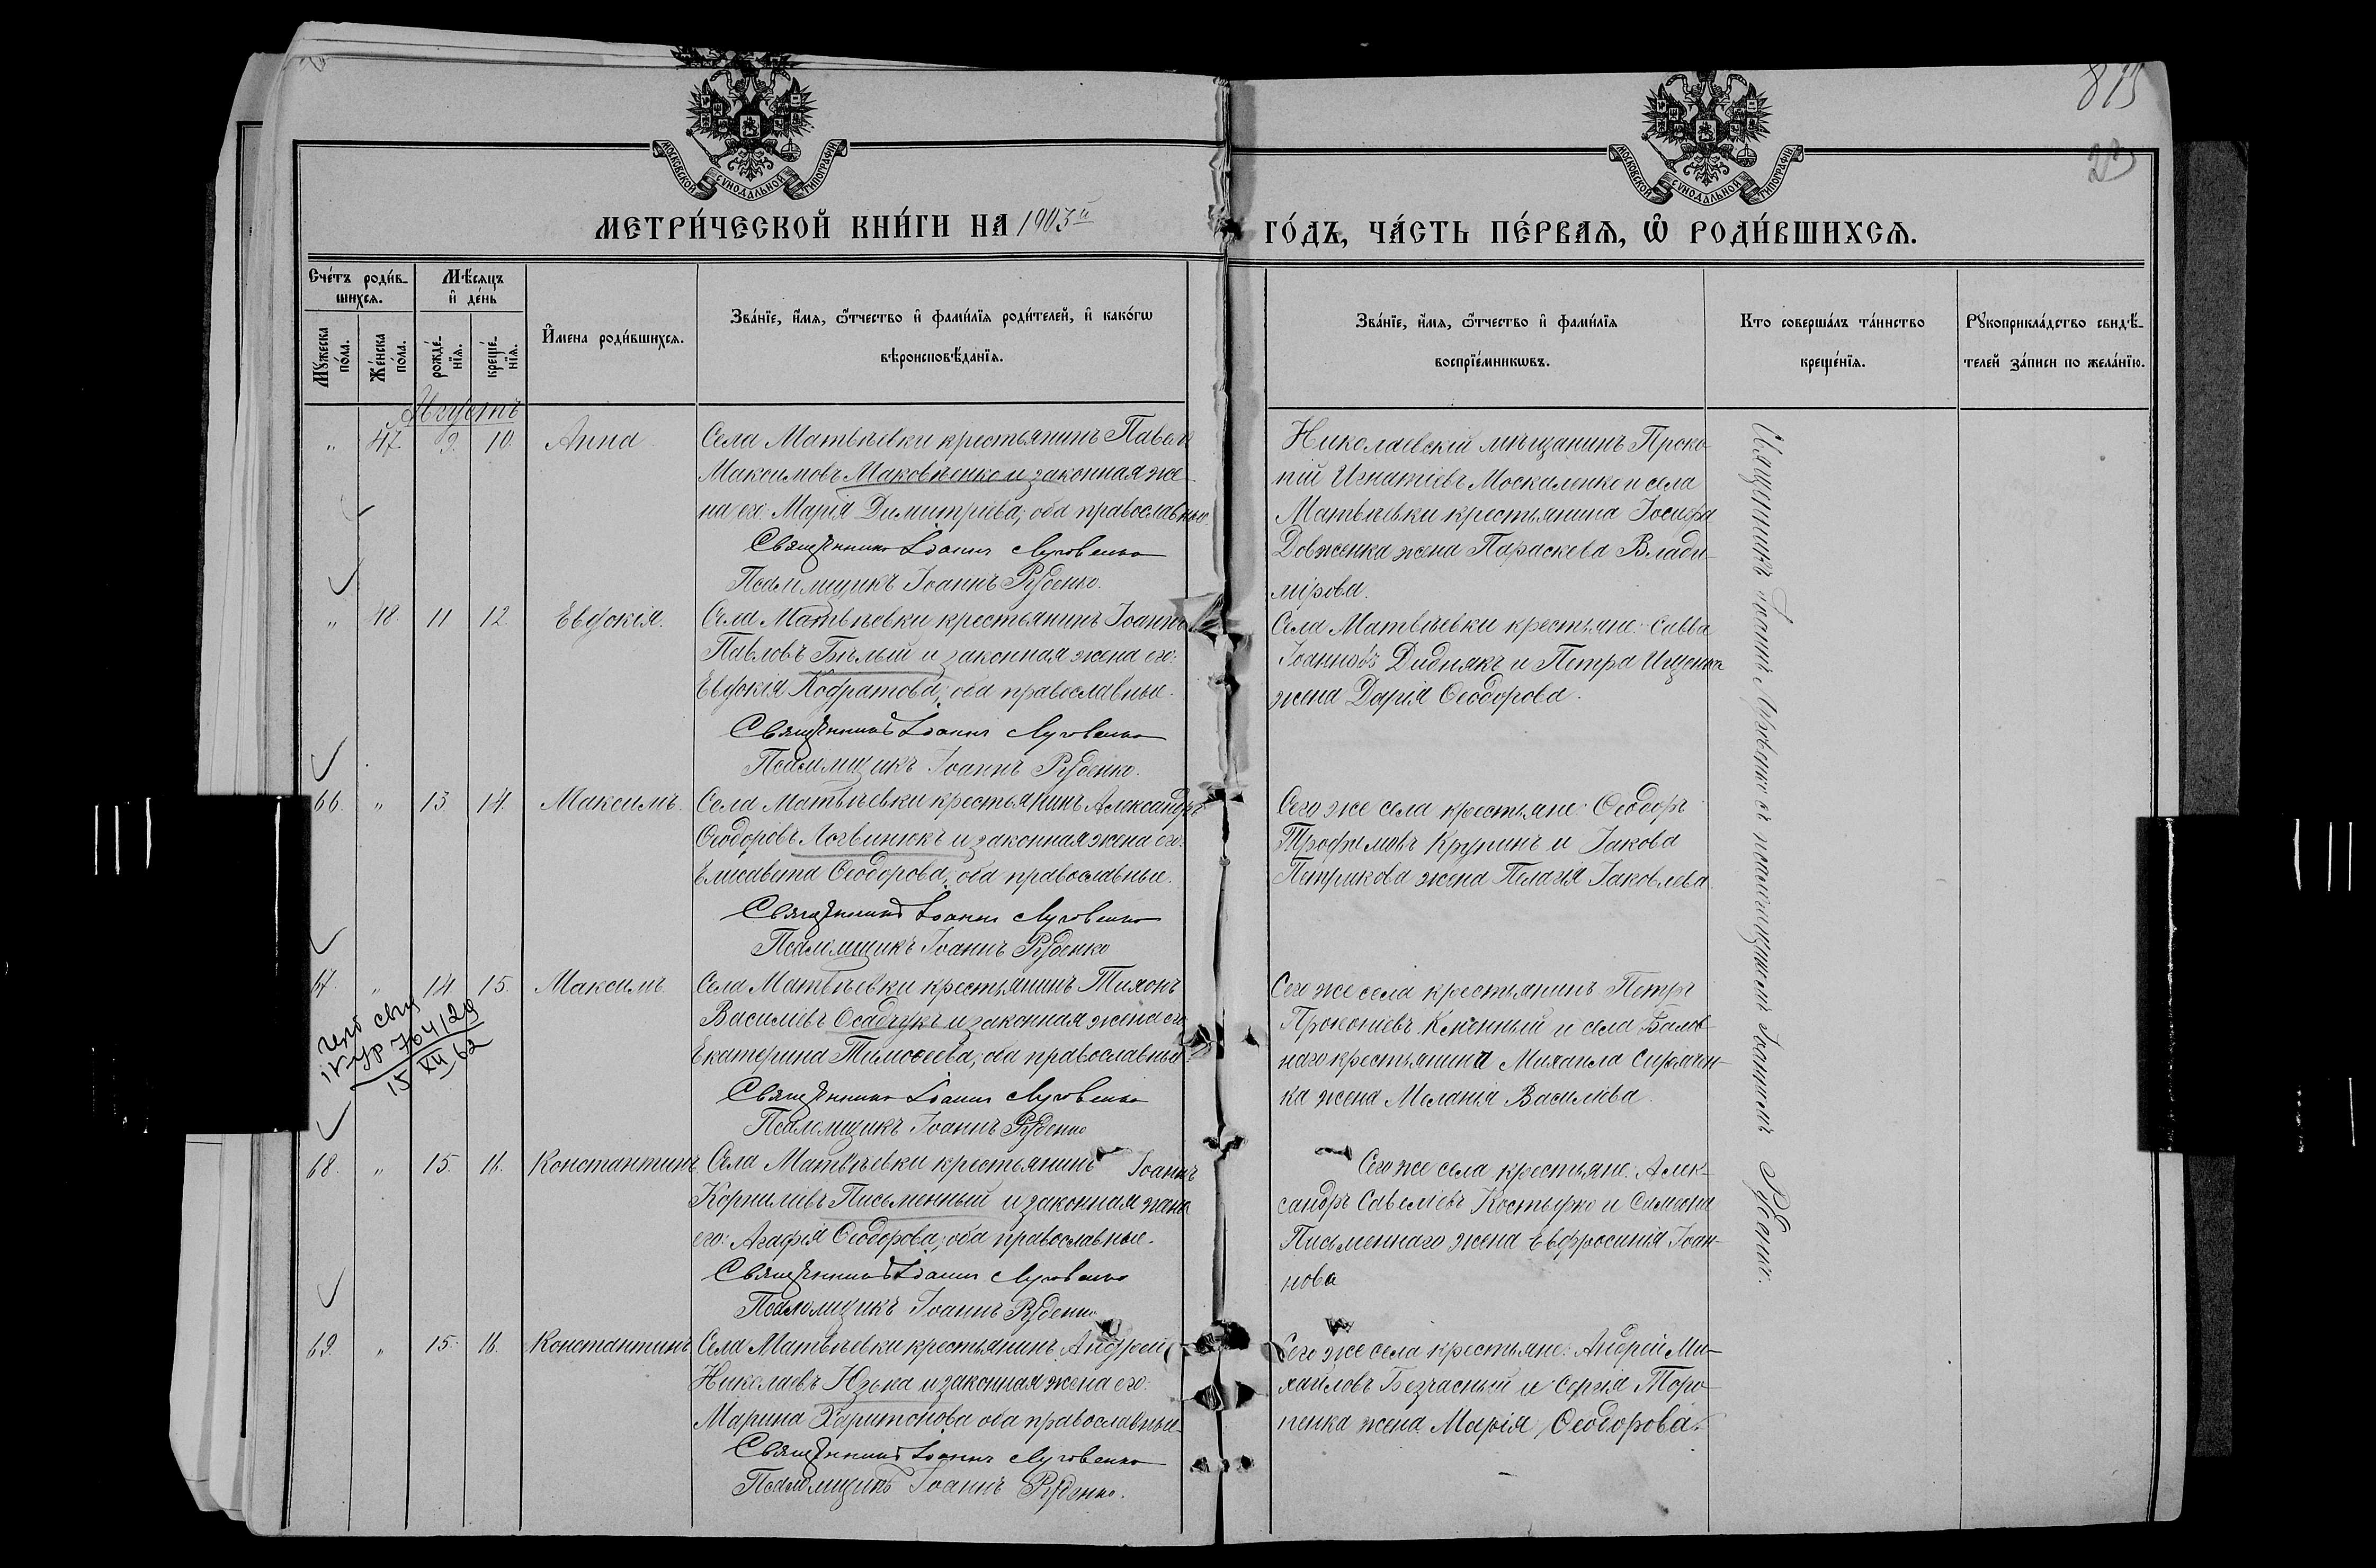 875
23
МОСКОВСКОЙ СѴНОДАЛЬНОЙ ТИПОГРАФІИ
МОСКОВСКОЙ СѴНОДАЛЬНОЙ ТИПОГРАФІИ
МЕТРИ́ЧЕСКОЙ КНИ́ГИ НА 1903й ГО́ДЪ, ЧА́СТЬ ПЕ́РВАѦ, Ѽ РОДИ́ВШИХСѦ.
Сче́тъ роди́в-
шихсѧ.
Мꙋ́жеска по́ла.
Же́нска по́ла.
Мѣ́сѧцъ
и҆ де́нь
рожде́-
нїѧ.
креще́-
нїѧ.
И҆мена роди́вшихсѧ.
Зва́нїе, и҆́мѧ, ѻ҆́тчество и҆ фами́лїѧ роди́телей, и҆ како́гѡ
вѣроисповѣ́данїѧ.
Зва́нїе, и҆́мѧ, ѻ҆́тчество и҆ фами́лїѧ
воспрїе́мникѡвъ.
Кто соверша́лъ та́инство
креще́нїѧ.
Рꙋкоприкла́дство свидѣ́-
телей за́писи по жела́нїю.
Августъ
" 47. 9. 10. Анна
Села Матвѣевки крестьянинъ Павелъ
Максимовъ Маковѣенко и законная же-
на его: Марія Димитріева; оба православные
Священникъ Іоаннъ Луговенко
Псаломщикъ Іоаннъ Руденко.
Николаевскій мѣщанинъ Проко-
пій Игнатіевъ Москаленко и села
Матвѣевки крестьянина Іосифа
Довженка жена Параскева Влади-
мірова.
" 48. 11 12 Евдокія.
Села Матвѣевки крестьянинъ Іоаннъ
Павловъ Бѣлый и законная жена его:
Евдокія Кодратова; оба православные.
Священникъ Іоаннъ Луговенко
Псаломщикъ Іоаннъ Руденко.
Села Матвѣевки крестьяне: Савва
Іоанновъ Диднякъ и Петра Ищенка
жена Дарія Ѳеодорова.
66. " 13 14. Максимъ.
Села Матвѣевки крестьянинъ Александръ
Ѳеодоровъ Логвинюкъ и законная жена его:
Елисавета Ѳеодорова; оба православные.
Священникъ Іоаннъ Луговенко
Псаломщикъ Іоаннъ Руденко
Сего же села крестьяне: Ѳеодоръ
Трофимовъ Крупинъ и Іакова
Петрикова жена Пелагія Іаковлева.
67. " 14 15. Максимъ.
Села Матвѣевки крестьянинъ Тихонъ
Василіевъ Осадчукъ и законная жена его
Екатерина Тимоѳеева; оба православные.
Священникъ Іоаннъ Луговенко
Псаломщикъ Іоаннъ Руденко
Сего же села крестьянинъ Петръ
Прокопіевъ и села Балов-
наго крестьянина Михаила
ка жена Меланія Василіева.
764129
15 XII 62
68. " 15. 16. Константинъ
Села Матвѣевки крестьянинъ Іоаннъ
Корниліевъ Письменный и законная жена
его: Агафія Ѳеодорова; оба православные.
Священникъ Іоаннъ Луговенко
Псаломщикъ Іоаннъ Руденко
Сего же села крестьяне: Алек-
сандръ Савеліевъ Костырко и Симеона
Письменнаго жена Евфросинія Іоан-
нова
69. " 15. 16. Константинъ
Села Матвѣевки крестьянинъ Андрей
Николаевъ Юзька и законная жена его:
Марина Харитонова оба православные.
Священникъ Іоаннъ Луговенко
Псаломщикъ Іоаннъ Руденко.
Сего же села крестьяне: Андрей Ми-
хайловъ Безчасный и Сергія Торо-
пенка жена Марія Ѳеодорова.
Священникъ Іоаннъ Луговенко съ псаломщикомъ Іоанномъ Руденко.